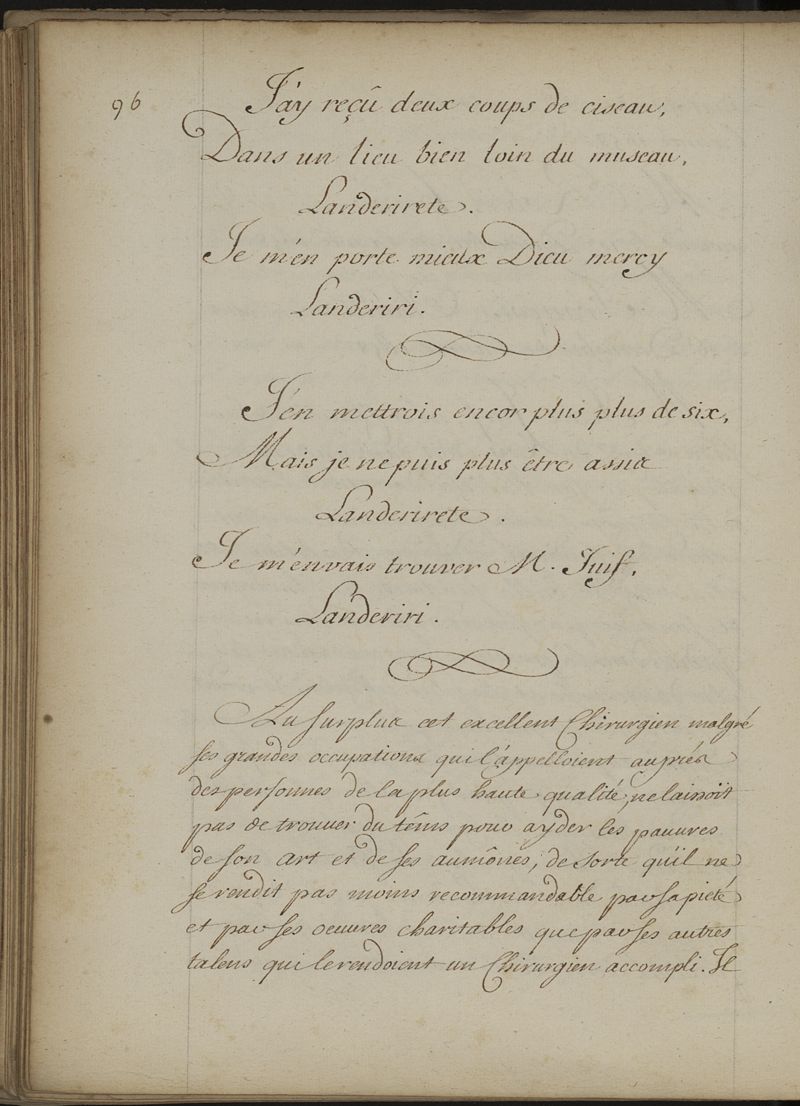 96
J'ay reçû deux coups de ciseau,
Dans un lieu bien loin du museau,
Landerirete.
Je m'en porte mieux Dieu mercy
Landeriri.
J'en mettrois encor plus plus de six,
Mais je ne puis plus être assis
Landerirete.
Je m'en vais trouver M. Juif,
Landeriri.
Au surplus cet excellent Chirurgien malgré
ses grandes occupations qui l'appelloient auprés
des personnes de la plus haute qualité, ne laissoit
pas de trouver du têms pour ayder les pauvres
de son art et de ses aumônes, de sorte qu'il ne
se rendit pas moins recommandable par sa pieté
et par ses oeuvres charitables que par ses autres
talens qui le rendoient un Chirurgien accompli. Il